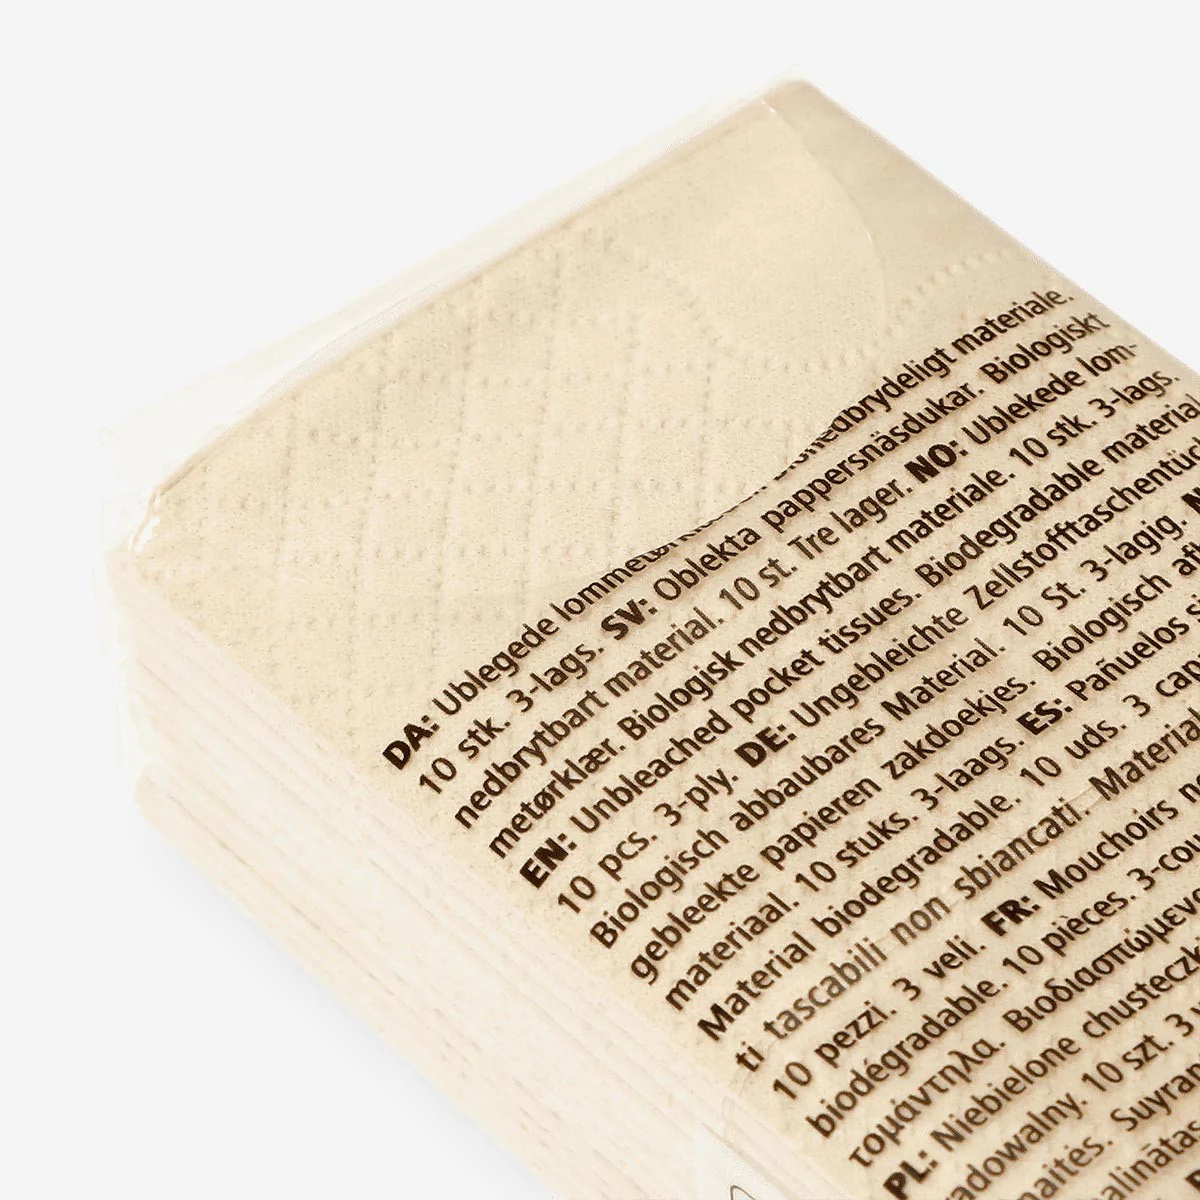 DA: Ublegede lommetørklæ nedbrydeligt materiale.
10 stk. 3-lags. SV: Oblekta pappersnäsdukar. Biologiskt
nedbrytbart material. 10 st. Tre lager. NO: Ublekede lom-
metørklær. Biologisk nedbrytbart materiale. 10 stk. 3-lags.
EN: Unbleached pocket tissues. Biodegradable material
10 pcs. 3-ply. DE: Ungebleichte Zellstofftaschentüc
Biologisch abbaubares Material. 10 St. 3-lagig.
gebleekte papieren zakdoekjes. Biologisch af
materiaal. 10 stuks. 3-laags. ES: Pañuelos s
Material biodegradable. 10 uds. 3 cap
ti tascabili non sbiancati. Material
10 pezzi. 3 veli. FR: Mouchoirs
biodégradable. 10 pièces. 3-cou
τομάντηλα. Βιοδιασπώμενο
PL: Niebielone chusteczk
adowalny. 10 szt. 3
aitės. Suyran
alinātas